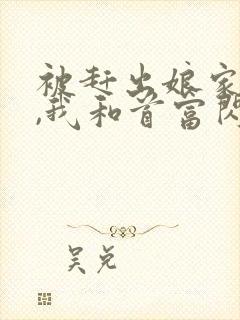 被赶出娘家
,我和首富闪
吴兑